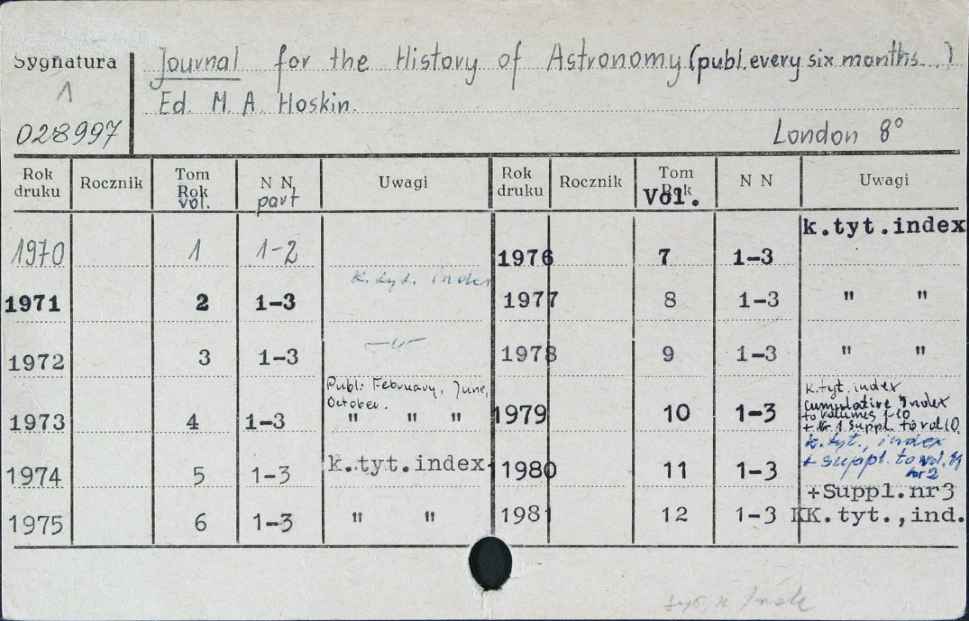 Sygnatura
1
028997
Journal for the History of Astronomy (publ. every six months...)
Ed. M. A. Hoskin.
London 8°
Rok druku Rocznik Tom Rok vol. N N part Uwagi Rok druku Rocznik Tom Rok Vol. N N Uwagi
1970 1 1-2
1971 2 1-3 k. tyt. index
1972 3 1-3 —"—
1973 4 1-3 Publ: February, June, October. " " "
1974 5 1-3 k.tyt.index
1975 6 1-3 " "
1976 7 1-3 k.tyt.index
1977 8 1-3 " "
1978 9 1-3 " "
1979 10 1-3 k.tyt. index
cumulative Index
to volumes 1-10
+ Nr 1 suppl. to vol 10.
1980 11 1-3 k.tyt., index
+ suppl. to vol. 11
nr 2
1981 12 1-3 +Suppl.nr3
K.tyt.,ind.